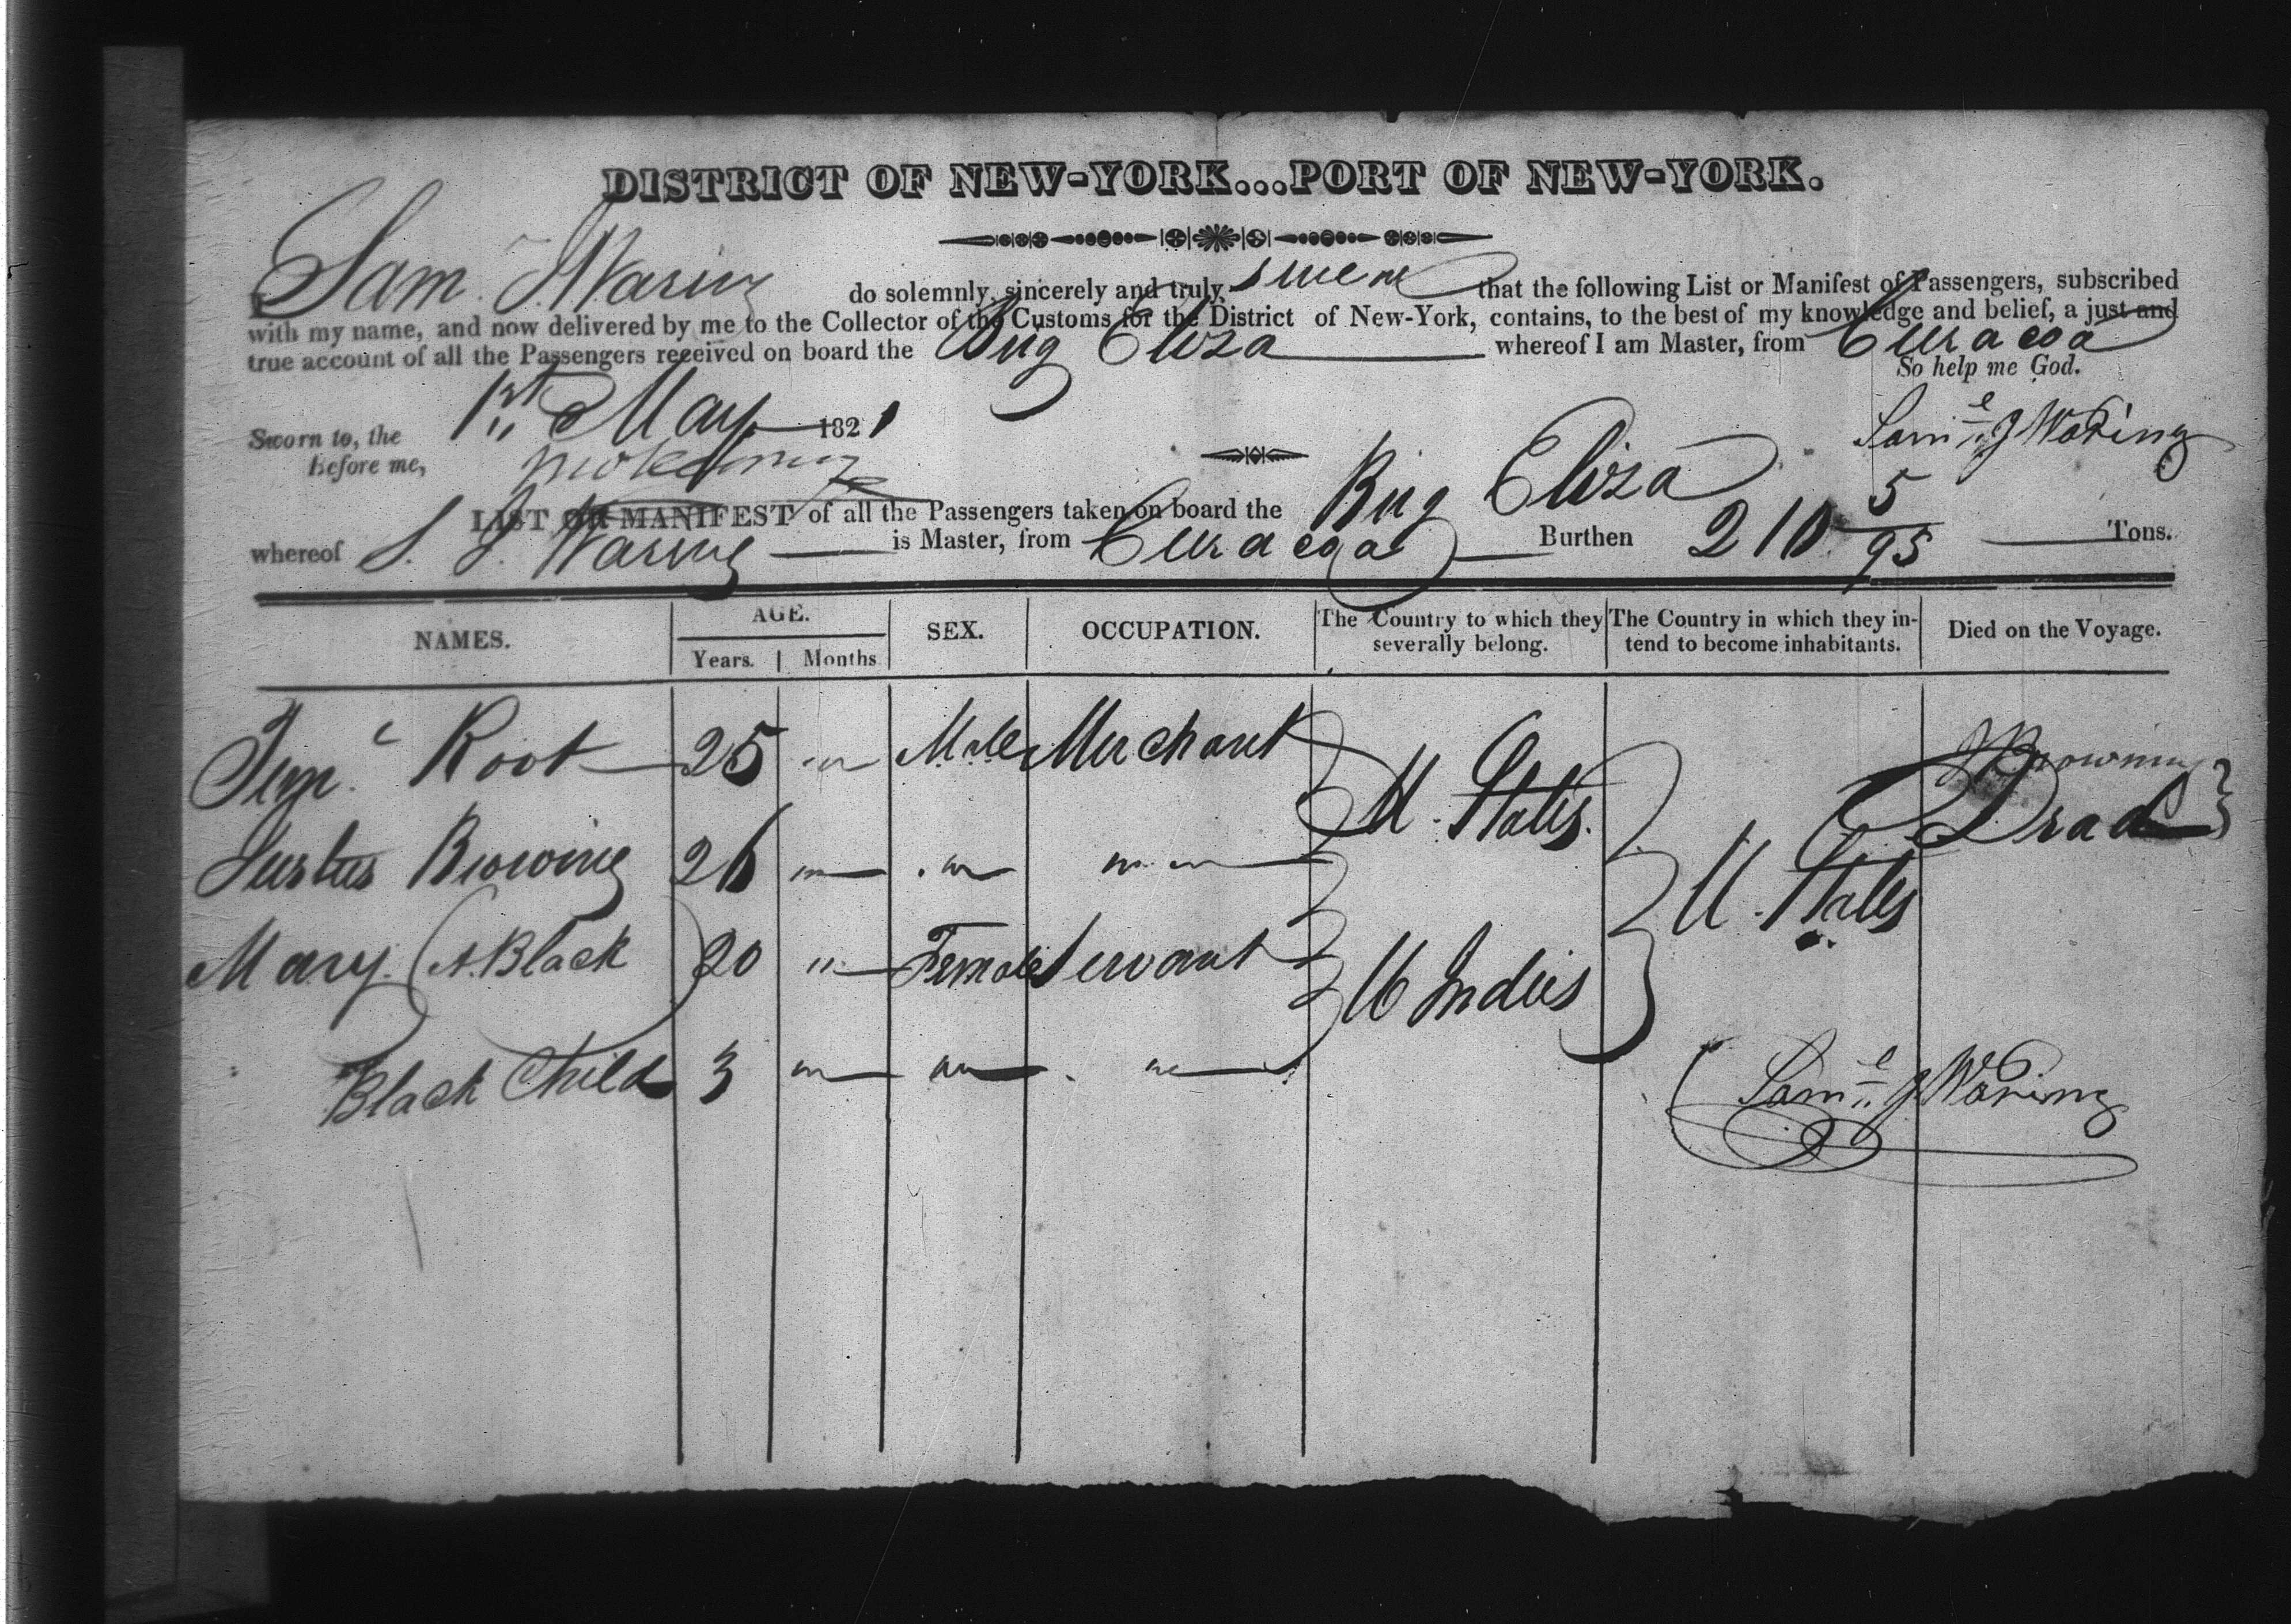 DISTRICT OF NEW-YORK...PORT OF NEW-YORK.
I Sam. J. Waring do solemnly, sincerely and truly, swear that the following List or Manifest of Passengers, subscribed
with my name, and now delivered by me to the Collector of the Customs for the District of New-York, contains, to the best of my knowledge and belief, a just and
true account of all the Passengers received on board the Brig Eliza whereof I am Master, from Curacoa
So help me God.
Sworn to, the 1st May 1821 Saml J Waring
Before me,
LIST OR MANIFEST of all the Passengers taken on board the Brig Eliza
whereof S. J. Waring is Master, from Curacoa Burthen 210 5/95 Tons.
NAMES. AGE. Years. Months. SEX. OCCUPATION. The Country to which they severally belong. The Country in which they intend to become inhabitants. Died on the Voyage.
Root 25 " Male Merchant U. States. Browning
Dead
26 " " " U. States
Mary (A. Black) 20 " Female Servant W Indies
Black Child 3 " " "
Saml J Waring